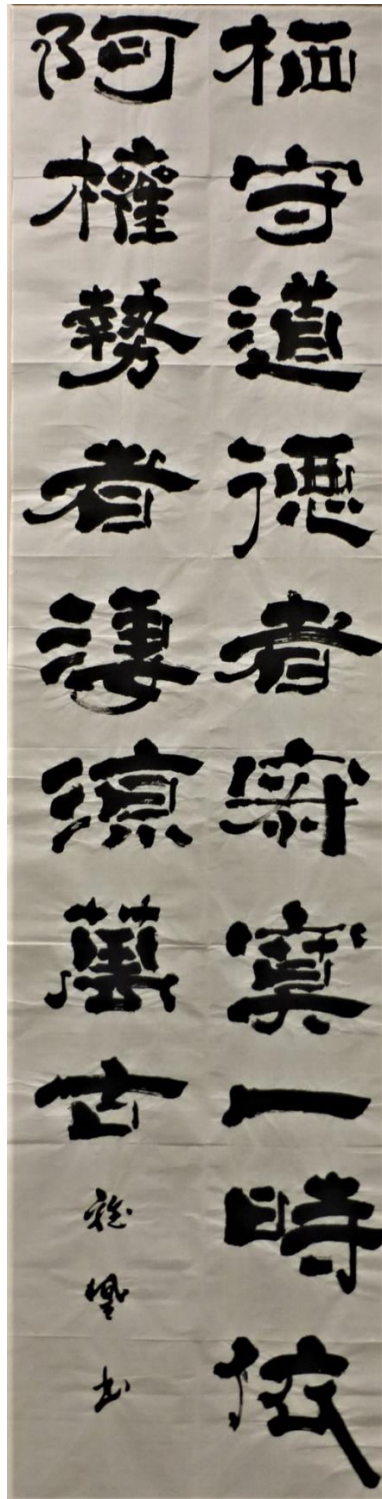 栖守道德者寂寞一時依
阿權勢者淒涼萬古
書